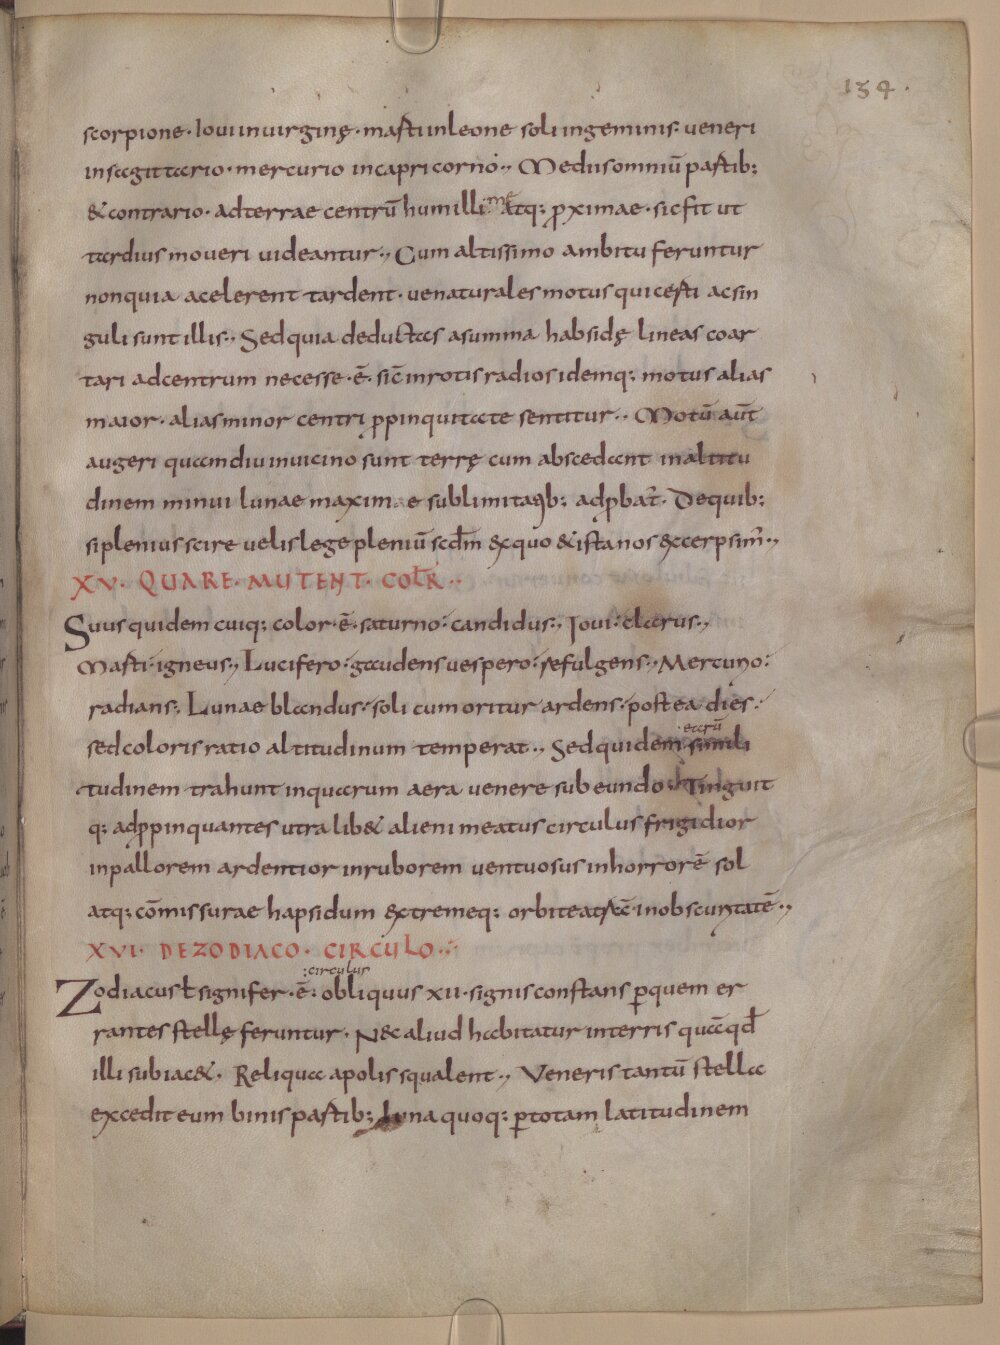 154.
scorpione· Ioui inuirginę· marti inleone soli ingeminis· ueneri
insagittario· mercurio incapricorno·, Medii sominiū partib;
& contrario· adterrae centrū humilli me atq; p̄ximae· sic fit ut
tardius moueri uideantur·, Cum altissimo ambitu feruntur
nonquia acelerent tardent· uenaturales motus qui certi acsin
guli sunt illis·, Sedquia deductas asumma habsidę lineas coar
tari adcentrum necesse·ē· sic̄ inrotis radios idemq; motus alias
maior· alias minor centri ꝓpinquitate sentitur·, Motū aūt
augeri quamdiu inuicino sunt terrę cum abscedant inaltitu
dinem minui lunae maximae sublimitaꝗb; adꝓbat̄· Dequib;
siplenius scire uelis lege pleniū scd̄m &quo &ista nos &cerpsim᷒·,
XV· QUARE· MUTENT· COŁR··
Suus quidem cuiq; color·ē· saturno: candidus:, Ioui: clarus·,
Marti: igneus·, Lucifero: gaudens uespero: refulgens·, Mercurio:
radians:, Lunae blandus: soli cum oritur ardens: postea dies:
sed coloris ratio altitudinum temperat·, Sed quidem earū simili
tudinem trahunt inquarum aera uenere subeundo: Tinguit
q; adꝓpinquantes utralib& alieni meatus circulus frigidior
inpallorem ardentior inruborem uentuosus inhorrorē sol
atq; cōmissurae hapsidum &tremeq; orbite atrā inobscuritatē·,
XVI· DEZODIACO· CIRCULO··
:circulus
Zodiacus ł signifer·ē: obliquus xii· signis constans ꝑquem er
rantes stellę feruntur· N& aliud habitatur interris quā qđ
illi subiac&· Reliqua apolis squalent·, Veneris tantū stella
excedit eum binis partib; Luna quoq; ꝑtotam latitudinem